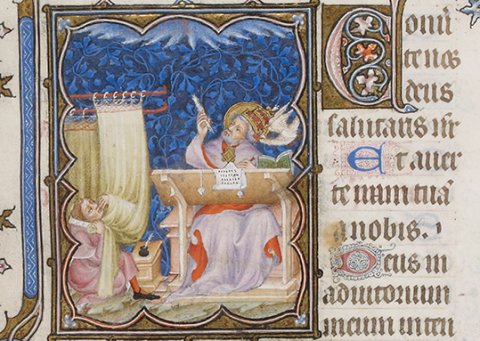 Conū
te nos
deus
salutaris nr̄
Et auer
te iram tuā
a nobis.
Deus in
adiutorium
meum inten